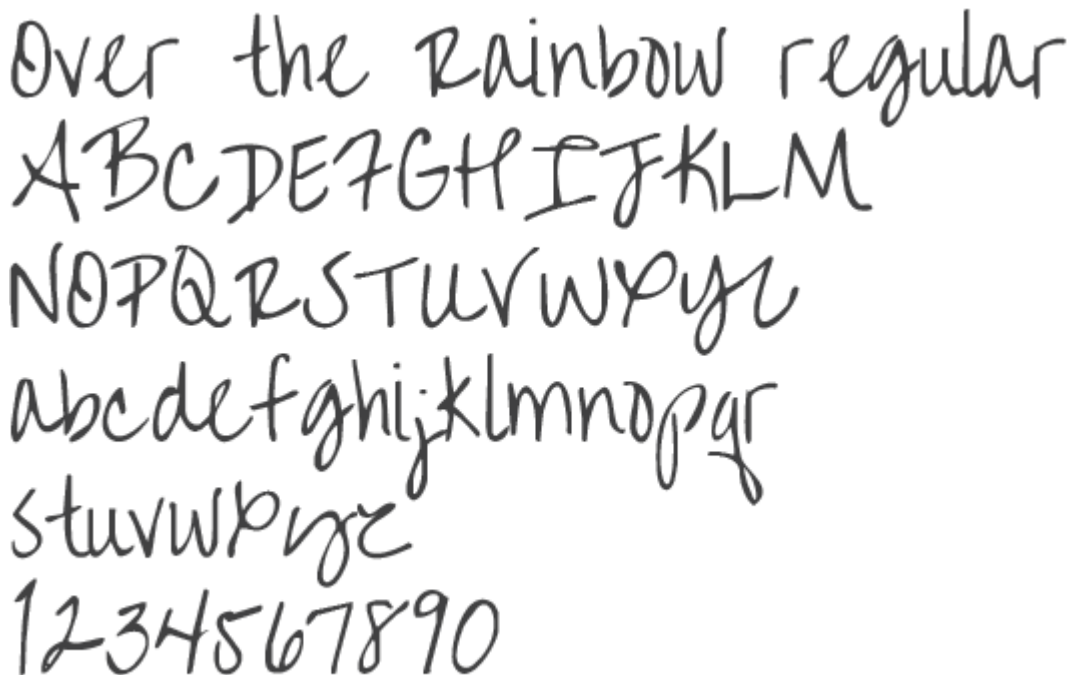 Over the Rainbow regular
ABCDEFGHIJKLM
NOPQRSTUVWXYZ
abcdefghijklmnopqr
stuvwxyz
1234567890